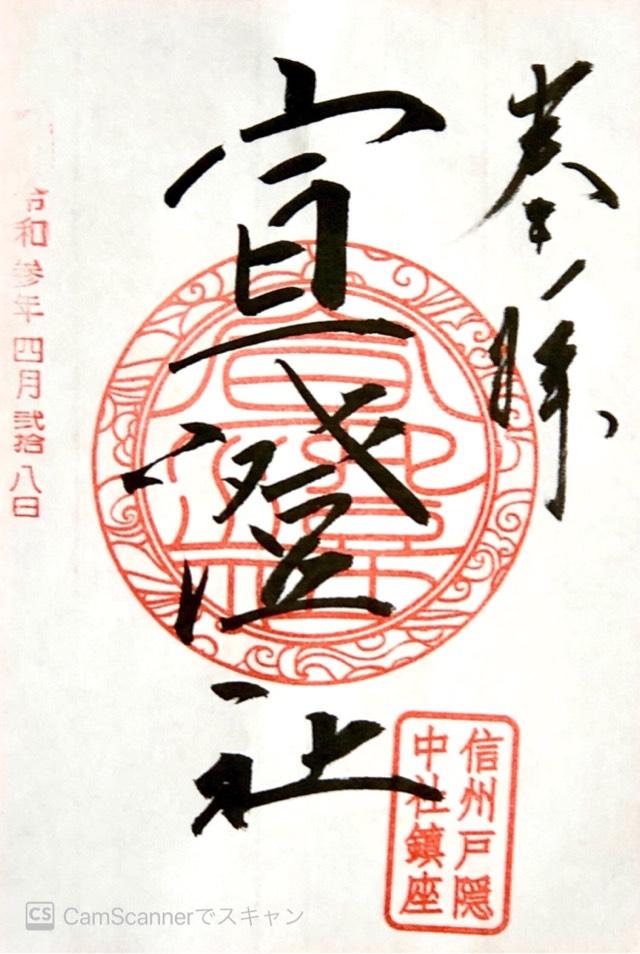 奉拝
宣澄社
信州戸隠
中社鎮座
令和参年四月弐拾八日
CS CamScannerでスキャン